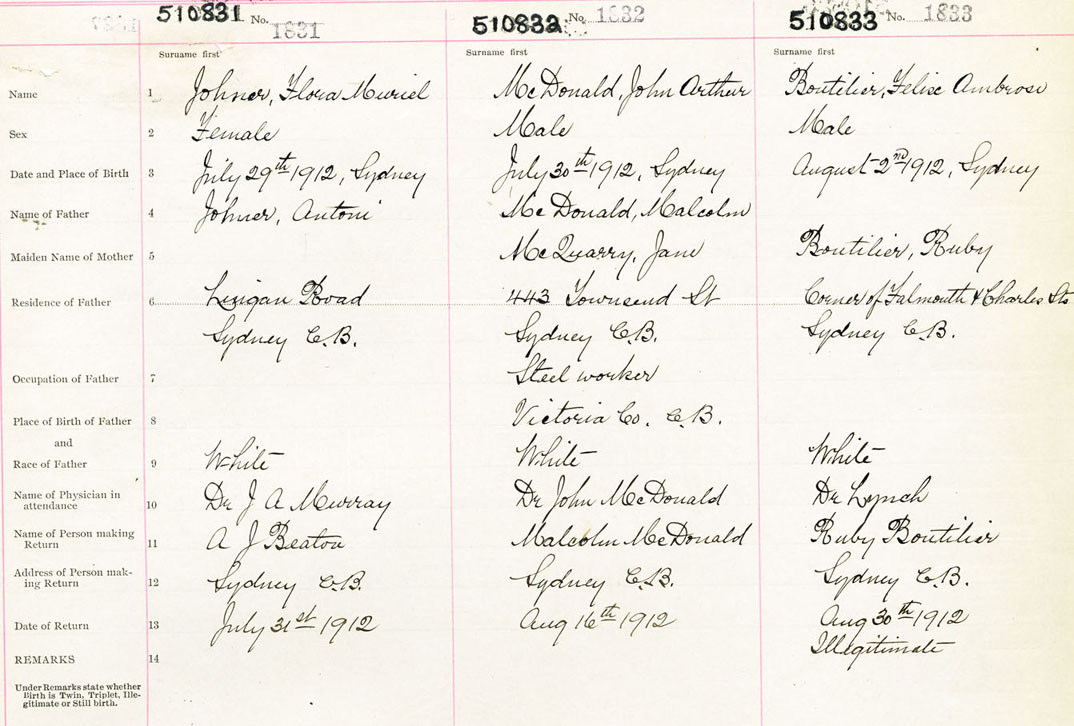 510831 No. 1831 510832 No. 1832 510833 No. 1833
Surname first Surname first Surname first
Name 1 Johner, Flora Muriel McDonald, John Arthur Boutilier, Felix Ambrose
Sex 2 Female Male Male
Date and Place of Birth 3 July 29th 1912, Sydney July 30th 1912, Sydney August 2nd 1912, Sydney
Name of Father 4 Johner, Antoni McDonald, Malcolm
Maiden Name of Mother 5 McQuarry, Jane Boutilier, Ruby
Residence of Father 6 Lingan Road 443 Townsend St Corner of Falmouth & Charles Sts
Sydney C.B. Sydney C.B. Sydney C.B.
Occupation of Father 7 Steel worker
Place of Birth of Father 8 Victoria Co. C.B.
and
Race of Father 9 White White White
Name of Physician in
attendance 10 Dr J A Murray Dr John McDonald Dr Lynch
Name of Person making
Return 11 A J Beaton Malcolm McDonald Ruby Boutilier
Address of Person mak-
ing Return 12 Sydney C.B. Sydney C.B. Sydney C.B.
Date of Return 13 July 31st 1912 Aug 16th 1912 Aug 30th 1912
REMARKS 14 Illegitimate
Under Remarks state whether
Birth is Twin, Triplet, Ille-
gitimate or Still birth.